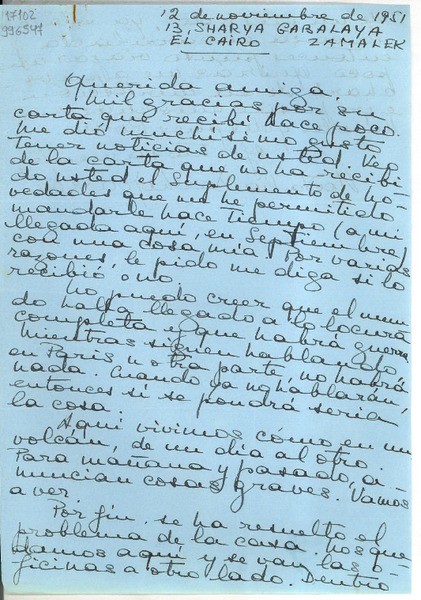 17102
996541
12 de noviembre de 1951
13, SHARYA GABALAYA
EL CAIRO ZAMALEK
Querida amiga:
Mil gracias por su
carta que recibí hace poco.
Me dió muchísimo gusto
tener noticias de usted. Veo
de la carta que no ha recibi
do usted el suplemento de no-
vedades que me he permitido
mandarle hace tiempo (a mi
llegada aquí, en Septiembre)
con una cosa mía. Por varias
razones, le pido me diga si lo
recibió o no.
No puedo creer que el mun
do haya llegado a la locura
completa y que habrá guerra.
Mientras siguen hablando
en París u otra parte, no habrá
nada. Cuando ya no hablarán,
entonces sí se pondrá seria
la cosa.
Aquí vivimos cómo en un
volcán, de un día al otro.
Para mañana y pasado, a-
nuncian cosas graves. Vamos
a ver.
Por fin, se ha resuelto el
problema de la casa. Nos que
damos aquí y se van las o-
ficinas a otro lado. Dentro